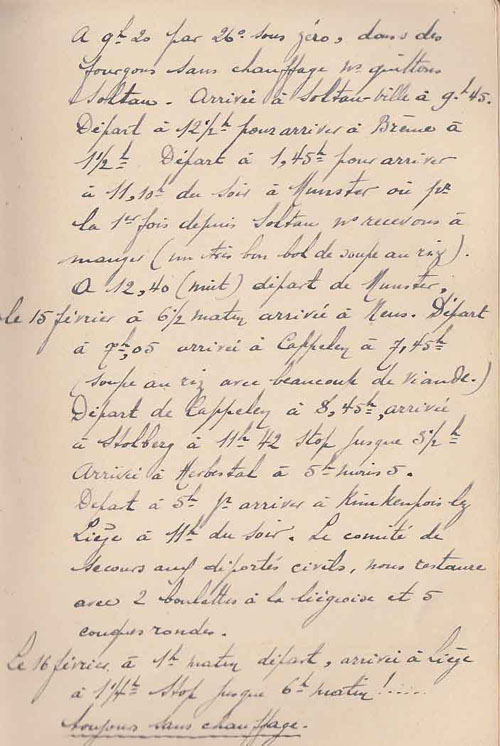 A 9h 20 par 26° sous zéro, dans des
fourgons sans chauffage ns quittons
Soltau. Arrivée à Soltau-ville à 9h45.
Départ à 12½h pour arriver à Brême à
1½h Départ à 1,45h pour arriver
à 11,10h du soir à Munster où pr
la 1er fois depuis Soltau ns recevons à
manger (un très bon bol de soupe au riz).
A 12,40 (nuit) départ de Munster,
le 15 février à 6½ matin arrivée à Neus. Départ
à 7h,05 arrivée à Cappelen à 7,45h
(soupe au riz avec beaucoup de viande.)
Départ de Cappelen à 8,45h, arrivée
à Stolberg à 11h 42 stop jusque 3½h
Arrivée à Herbestal à 5h moins 5.
Départ à 5h pr arriver à Kinkenpois lz
Liège à 11h du soir. Le comité de
secours aux déportés civils, nous restaure
avec 2 boulettes à la liégeoise et 5
couques rondes.
Le 16 février à 1h matin départ, arrivée à Liège
à 1¼h stop jusque 6h matin!.....
toujours sans chauffage.